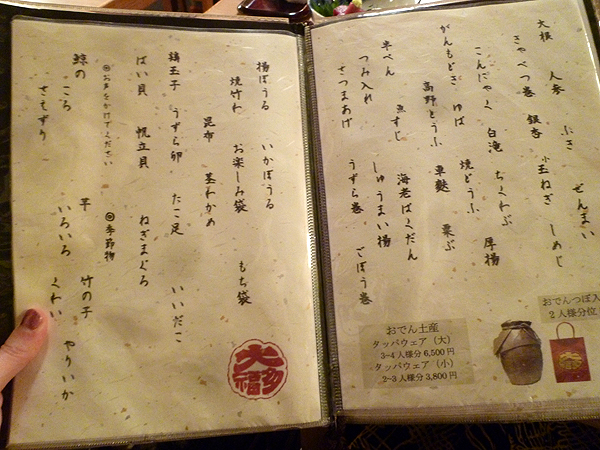 大根 人参 ふき ぜんまい
きゃべつ巻 銀杏 小玉ねぎ しめじ
こんにゃく 白滝 ちくわぶ 厚揚
がんもどき ゆば 焼どうふ 栗ぶ
高野とうふ 車麩
半ぺん 魚すじ 海老ばくだん
つみ入れ しゅうまい揚
さつまあげ うずら巻 ごぼう巻
おでんつぼ入
2人様分位
おでん土産
タッパウェア(大)
3~4人様分6,500円
タッパウェア(小)
2~3人様分3,800円
揚ぼうる いかぼうる
焼竹わ お楽しみ袋 もち袋
昆布 茎わかめ
鶏玉子 うずら卵 たこ足 いいだこ
ばい貝 帆立貝 ねぎまぐろ
◎お声をかけてください ◎季節物
鯨の ころ 芋 竹の子
さえずり いろいろ やりいか
くわい
大多福